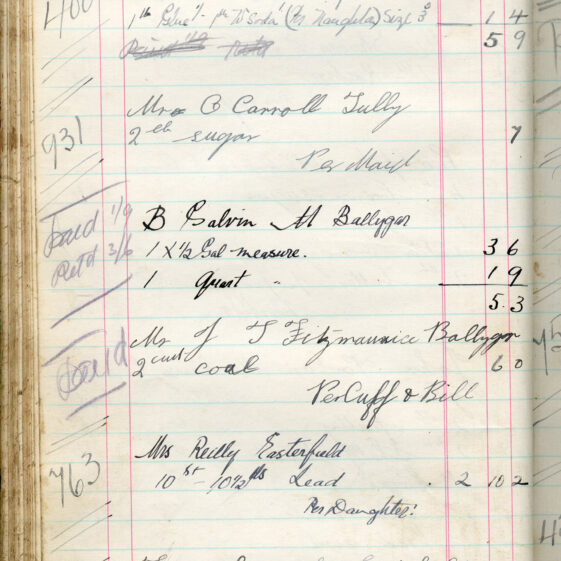 400
1 lb Glue /- 1 lb W Soda (Per Daughter) Size 3 1 4
5 9
Mrs B Carroll Tully
931
2 lb sugar 7
Per Maid
B Galvin M Ballygar
paid 1/9
Retd 3/6
1 X 1/2 Gal measure. 3 6
1 Quart " 1 9
5 3
Mr J T Fitzmaurice Ballygar
paid
2 cwt coal 6 0
Per Cuff & Bill
Mrs Reilly Easterfield
763
10 st - 10 1/2 lbs Lead . 2 10 2
Per Daughter.